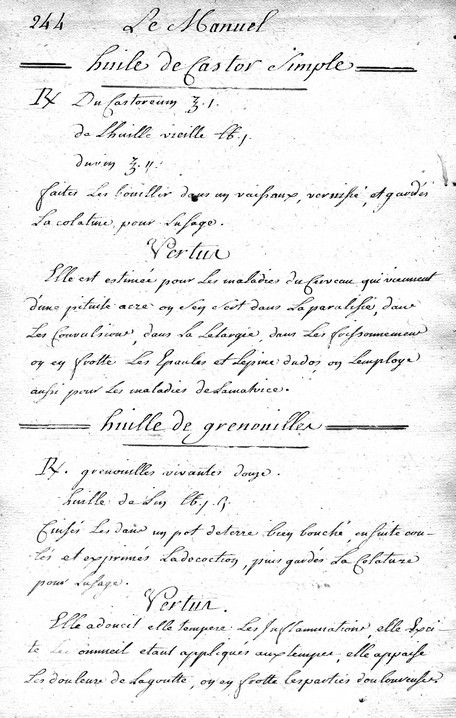 244 Le Manuel
huile de Castor Simple
℞ Du Castoreum ℥.1.
de Lhuille vieille ℔j.
du vin ℥.ij.
faites Les bouillir dans un vaissaux, vernissé, et gardés
La colature pour Lusage.
Vertus
Elle est estimée pour Les maladies du Cerveau qui viennent
d'une pituite acre on s'en sert dans La paralisie, dans
Les Convulsions, dans La Letargie, dans Les frissonnement
on en frotte Les Epaules et Lepine du dos, on Lemploye
aussi pour Les maladies de Lamatrice.
huille de grenouilles
℞. grenouilles vivantes douze.
huille de Lin ℔.j.ß
Cuisés Les dans un pot de terre bien bouché, ensuite cou-
lés et exprimés La decoction, puis gardés La Colature
pour Lusage.
Vertus.
Elle adoucit elle tempere Les Inflammations, elle Exci-
te Le someil etant appliqués aux tempes, elle appaise
Les douleurs de La goutte, on en frotte les parties douloureuses.